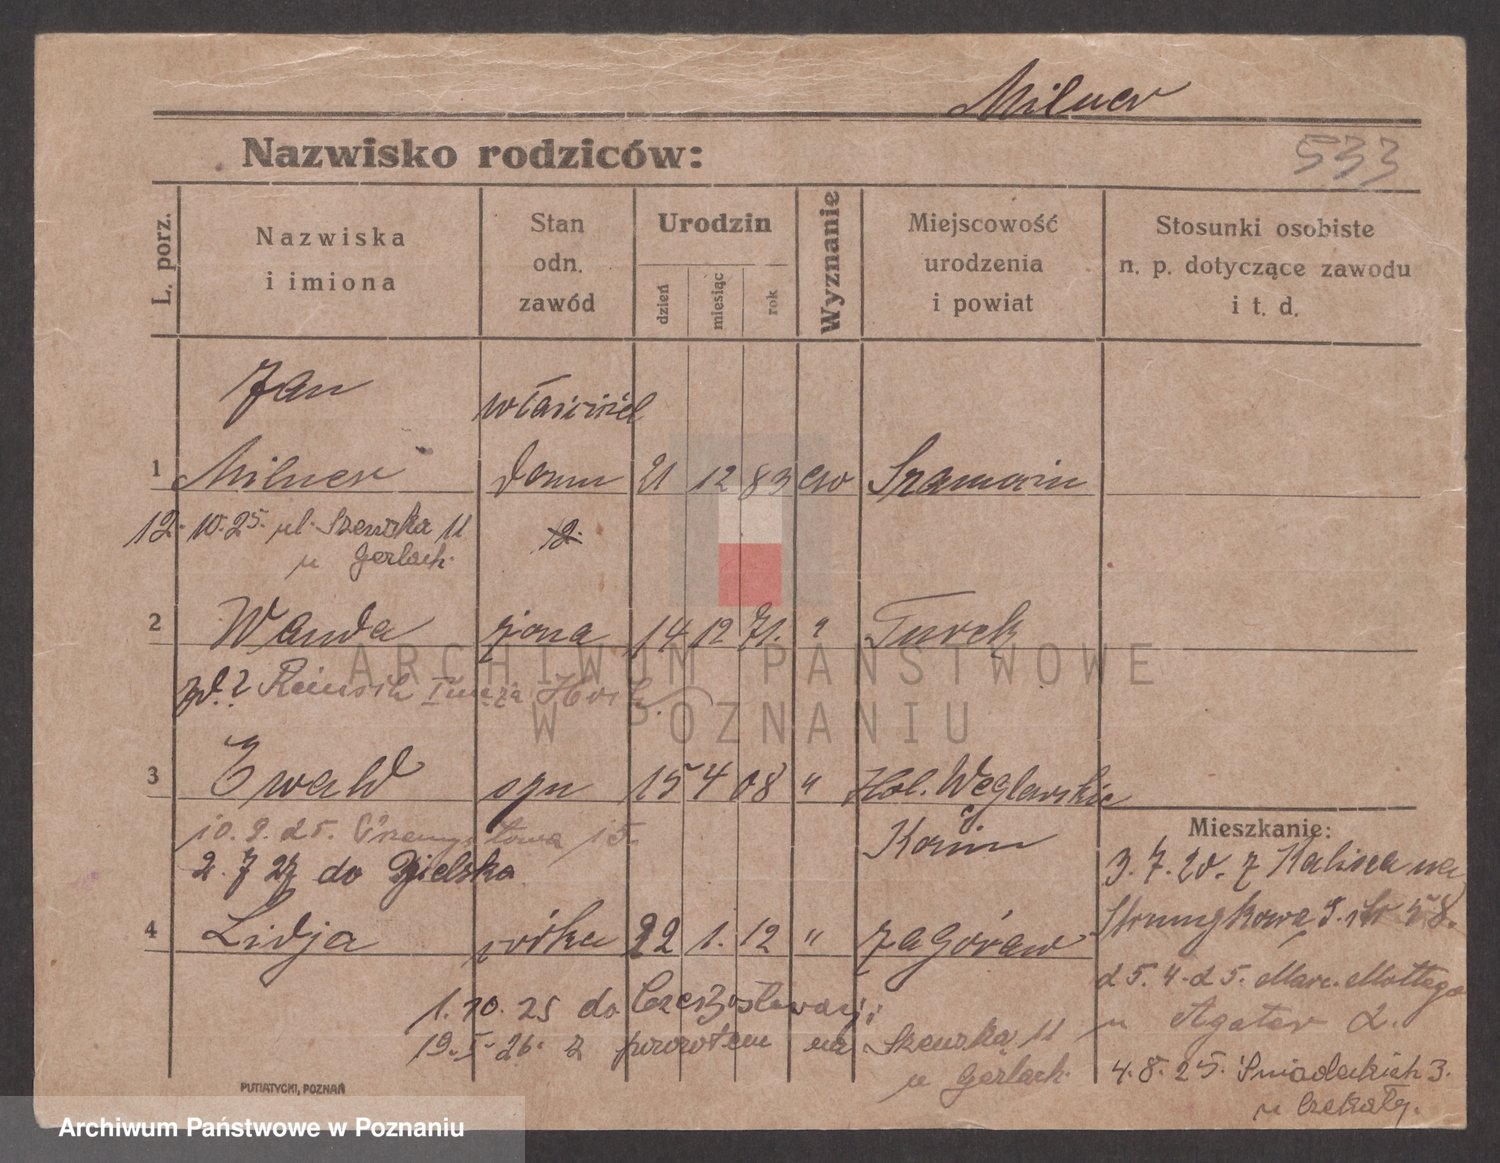 Milner
Nazwisko rodziców:
533
L. porz.
Nazwiska
i imiona
Stan
odn.
zawód
Urodzin
dzień
miesiąc
rok
Wyznanie
Miejscowość
urodzenia
i powiat
Stosunki osobiste
n. p. dotyczące zawodu
i t. d.
Jan
właściciel
1 Milner domu 21 12 83 ew
12. 10. 25. ul. Szewska 11
u Gerlach.
2 Wanda żona 14 12 71. " Turek
3 Ewald syn 15 4 08 " Hol. Węglewskie
Konin
10. 9. 25. Przemysłowa 15.
2. 7 27 do Bielska
4 Lidja córka 22 1. 12 " Zagórów
1. 10. 25 do Czechosłowacji
19. 5. 26. z powrotem na Szewska 11
u Gerlach.
Mieszkanie:
3. 7. 20. z Kalisza na
25. 4. 25. Marc. Mottego
u 2.
4. 8. 25. Śniadeckich 3.
u
PUTIATYCKI, POZNAŃ
ARCHIWUM PAŃSTWOWE
W POZNANIU
Archiwum Państwowe w Poznaniu